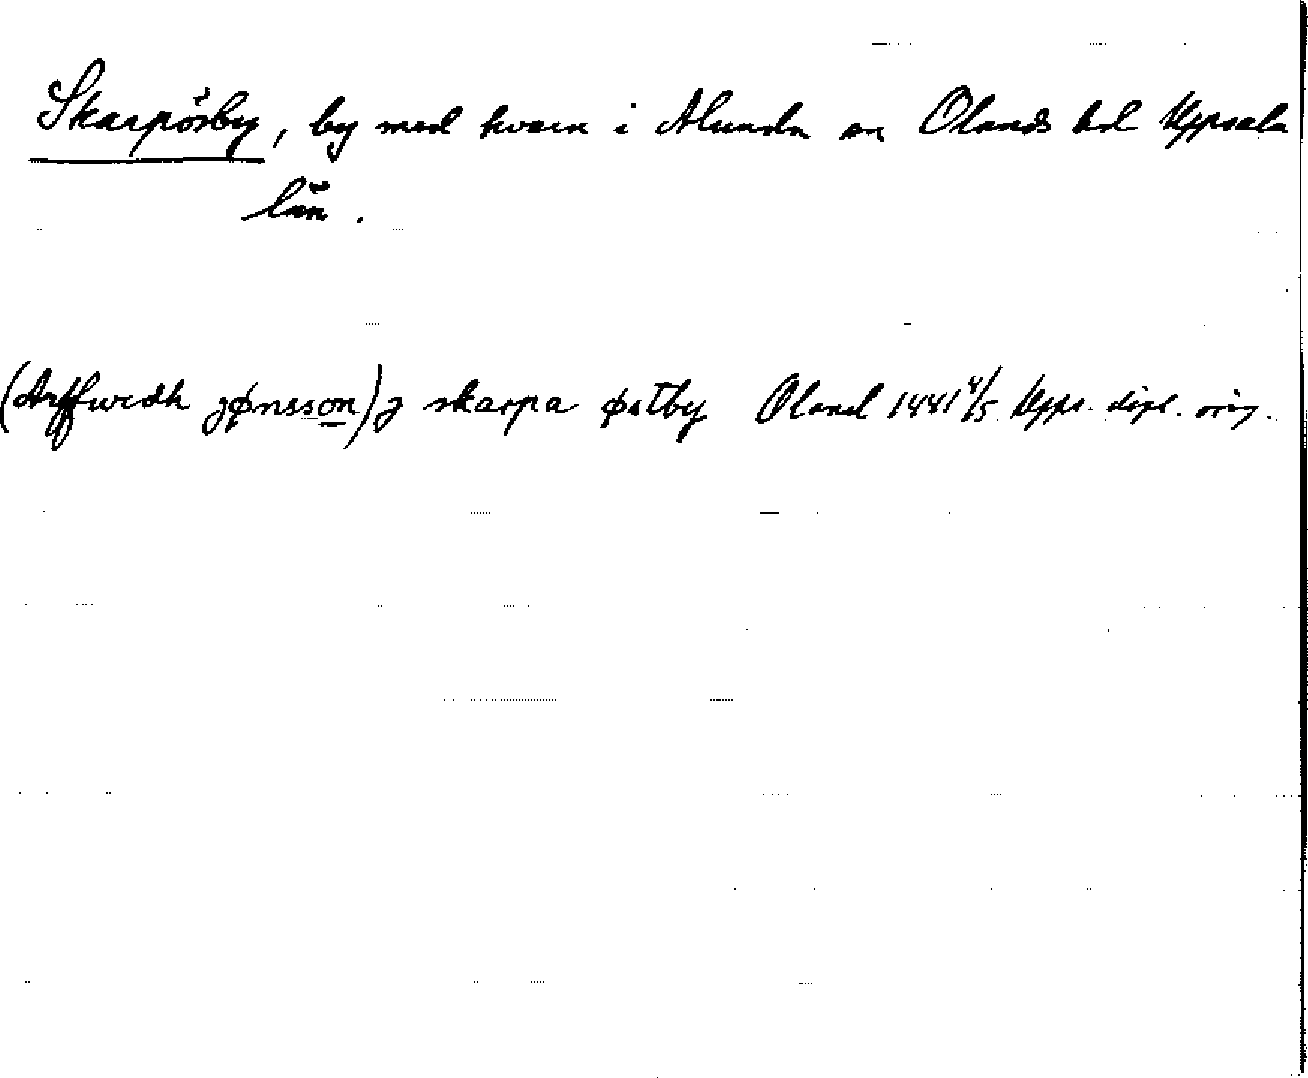 Skarpörby, by med kvarn i Alunda sn Olands hd Uppsala
län.
(Arffwidh jønsson) j skarpa østby Oland 1441 4/5 Upps. dipl. orig.